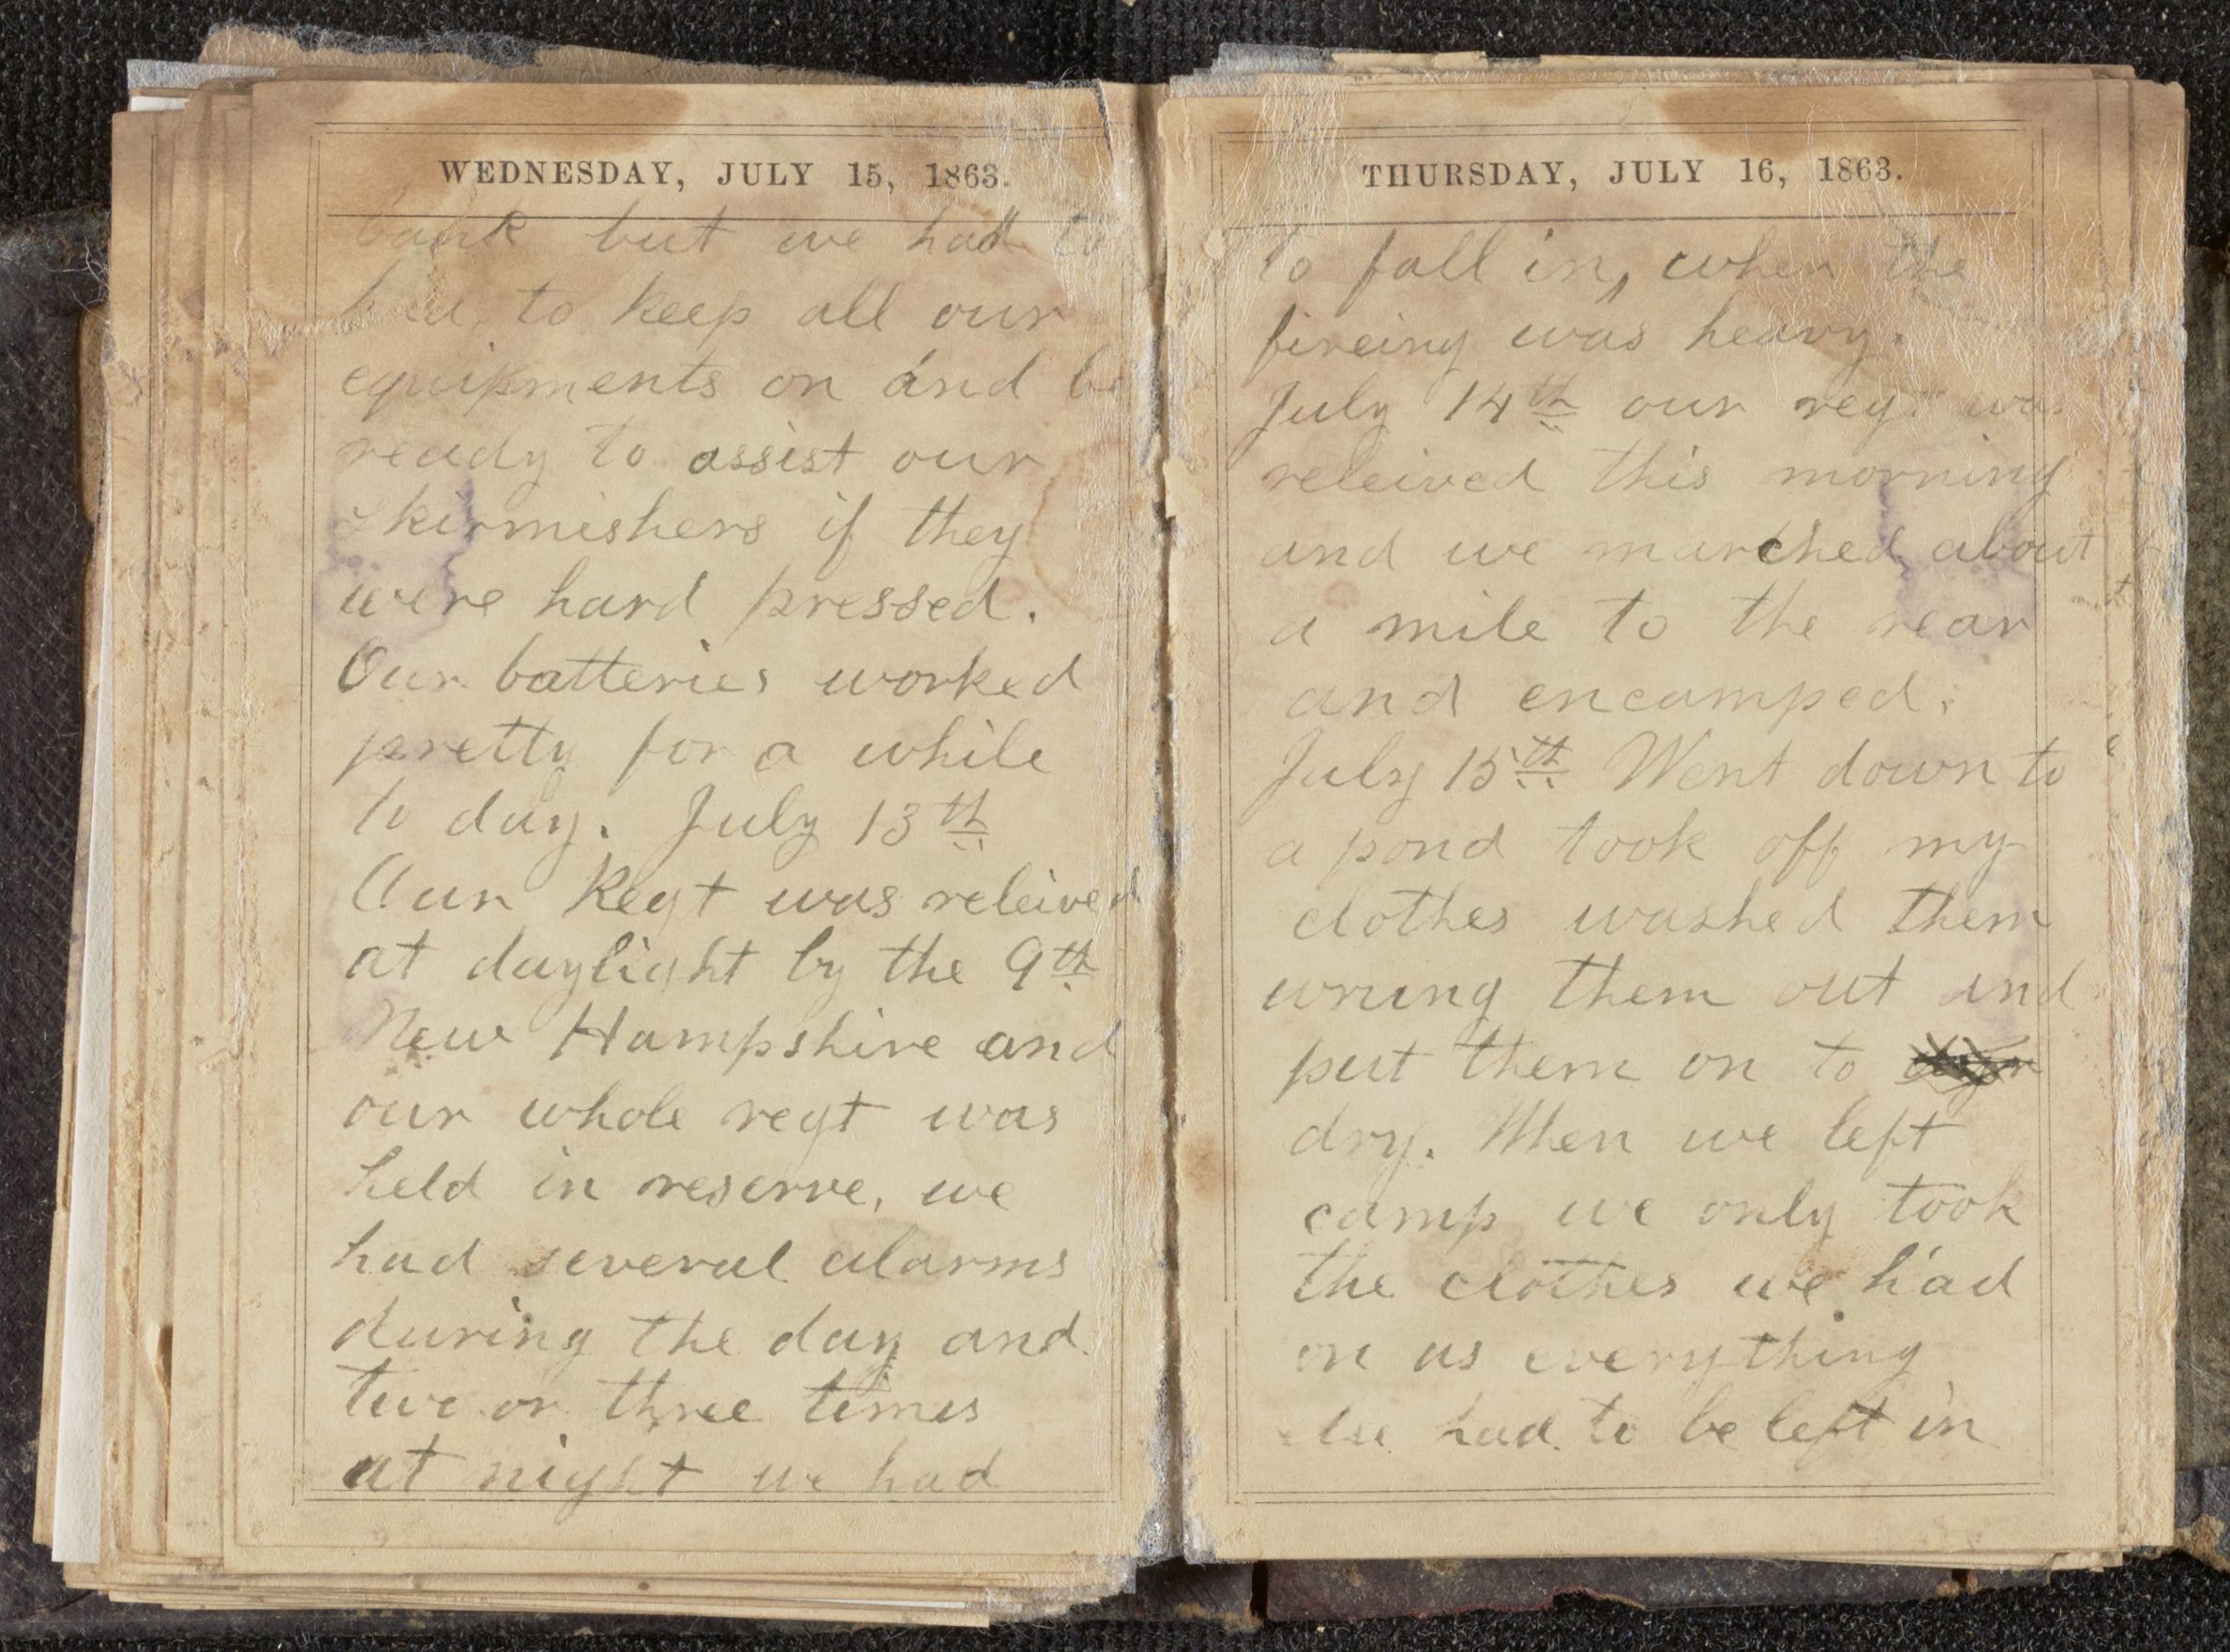 WEDNESDAY, JULY 15, 1863.
bank but we had to
to keep all our
equipments on and be
ready to assist our
skirmishers if they
were hard pressed.
Our batteries worked
pretty for a while
to day. July 13th
Our Regt was releived
at daylight by the 9th
New Hampshire and
our whole regt was
held in reserve, we
had several alarms
during the day and
two or three times
at night we had
THURSDAY, JULY 16, 1863.
to fall in, when the
fireing was heavy.
July 14th our regt was
releived this morning
and we marched about
a mile to the rear
and encamped.
July 15th Went down to
a pond took off my
clothes washed them
wrung them out and
put them on to
dry. When we left
camp we only took
the clothes we had
on us everything
had to be left in